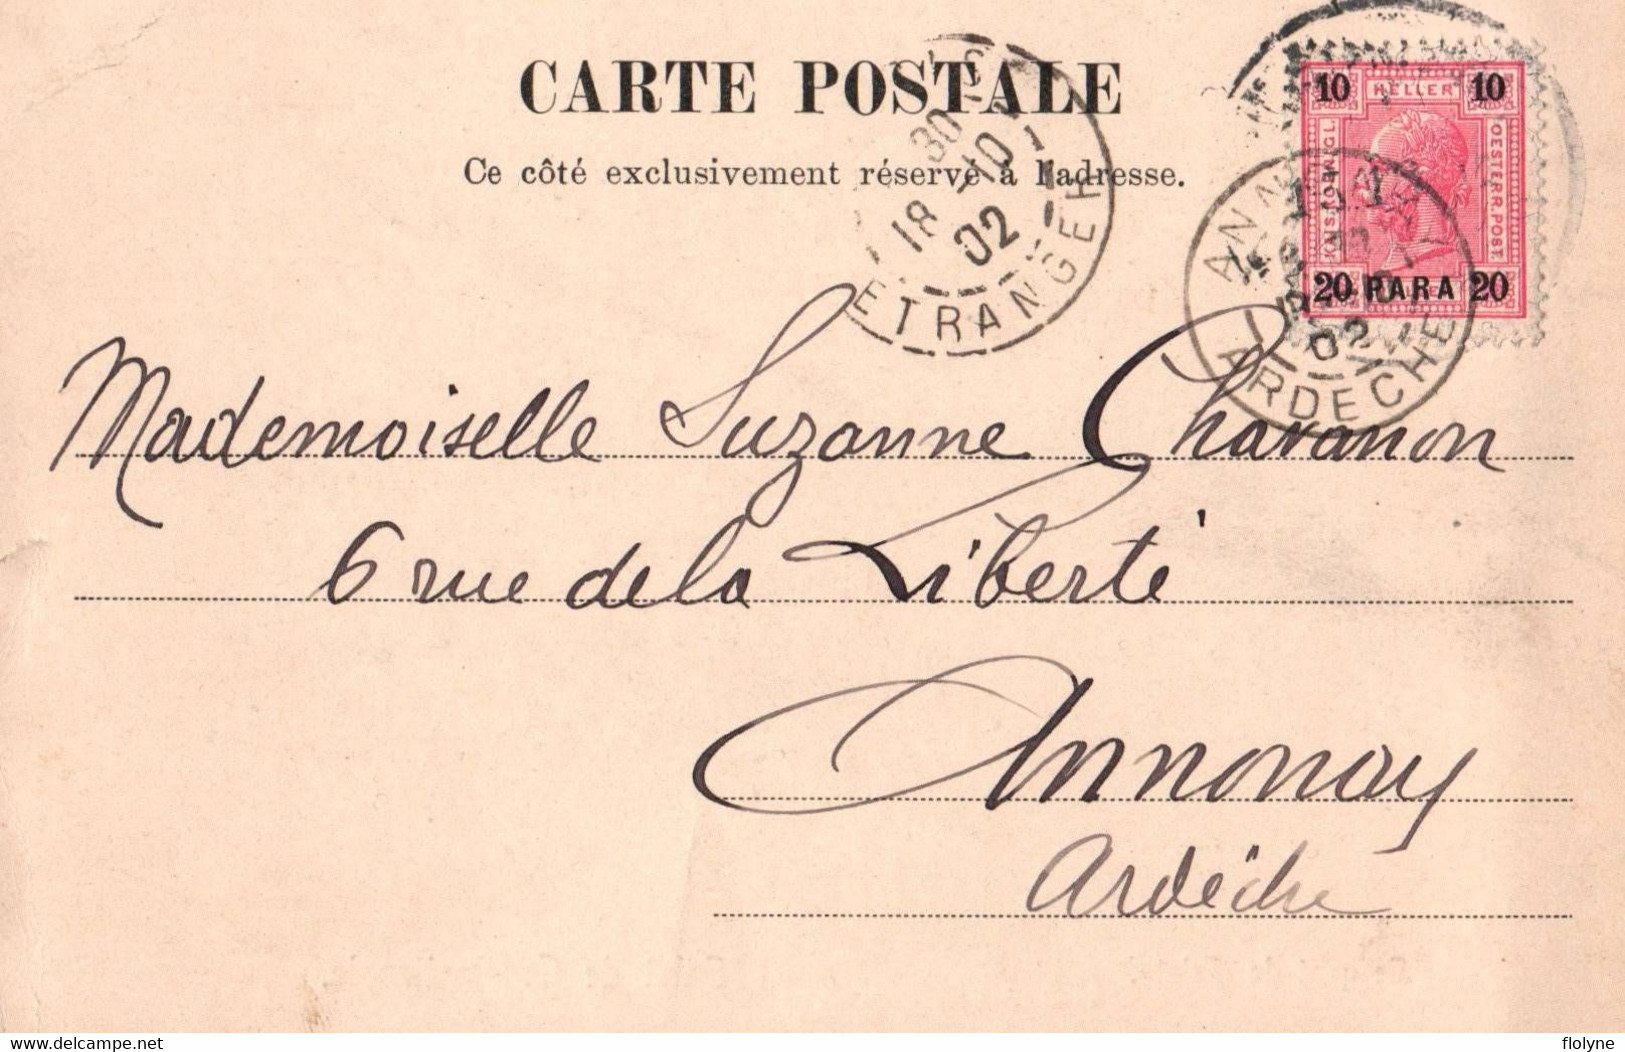 CARTE POSTALE
Ce côté exclusivement réservé à l'adresse.
30
18 -10
02
ETRANGER
10 HELLER 10
KAIS.KOENIGL.
OESTERR.POST.
20 PARA 20
ANN
02
ARDECHE
Mademoiselle Suzanne Chavanon
6 rue de la Liberté
Annonay
Ardèche
flolyne